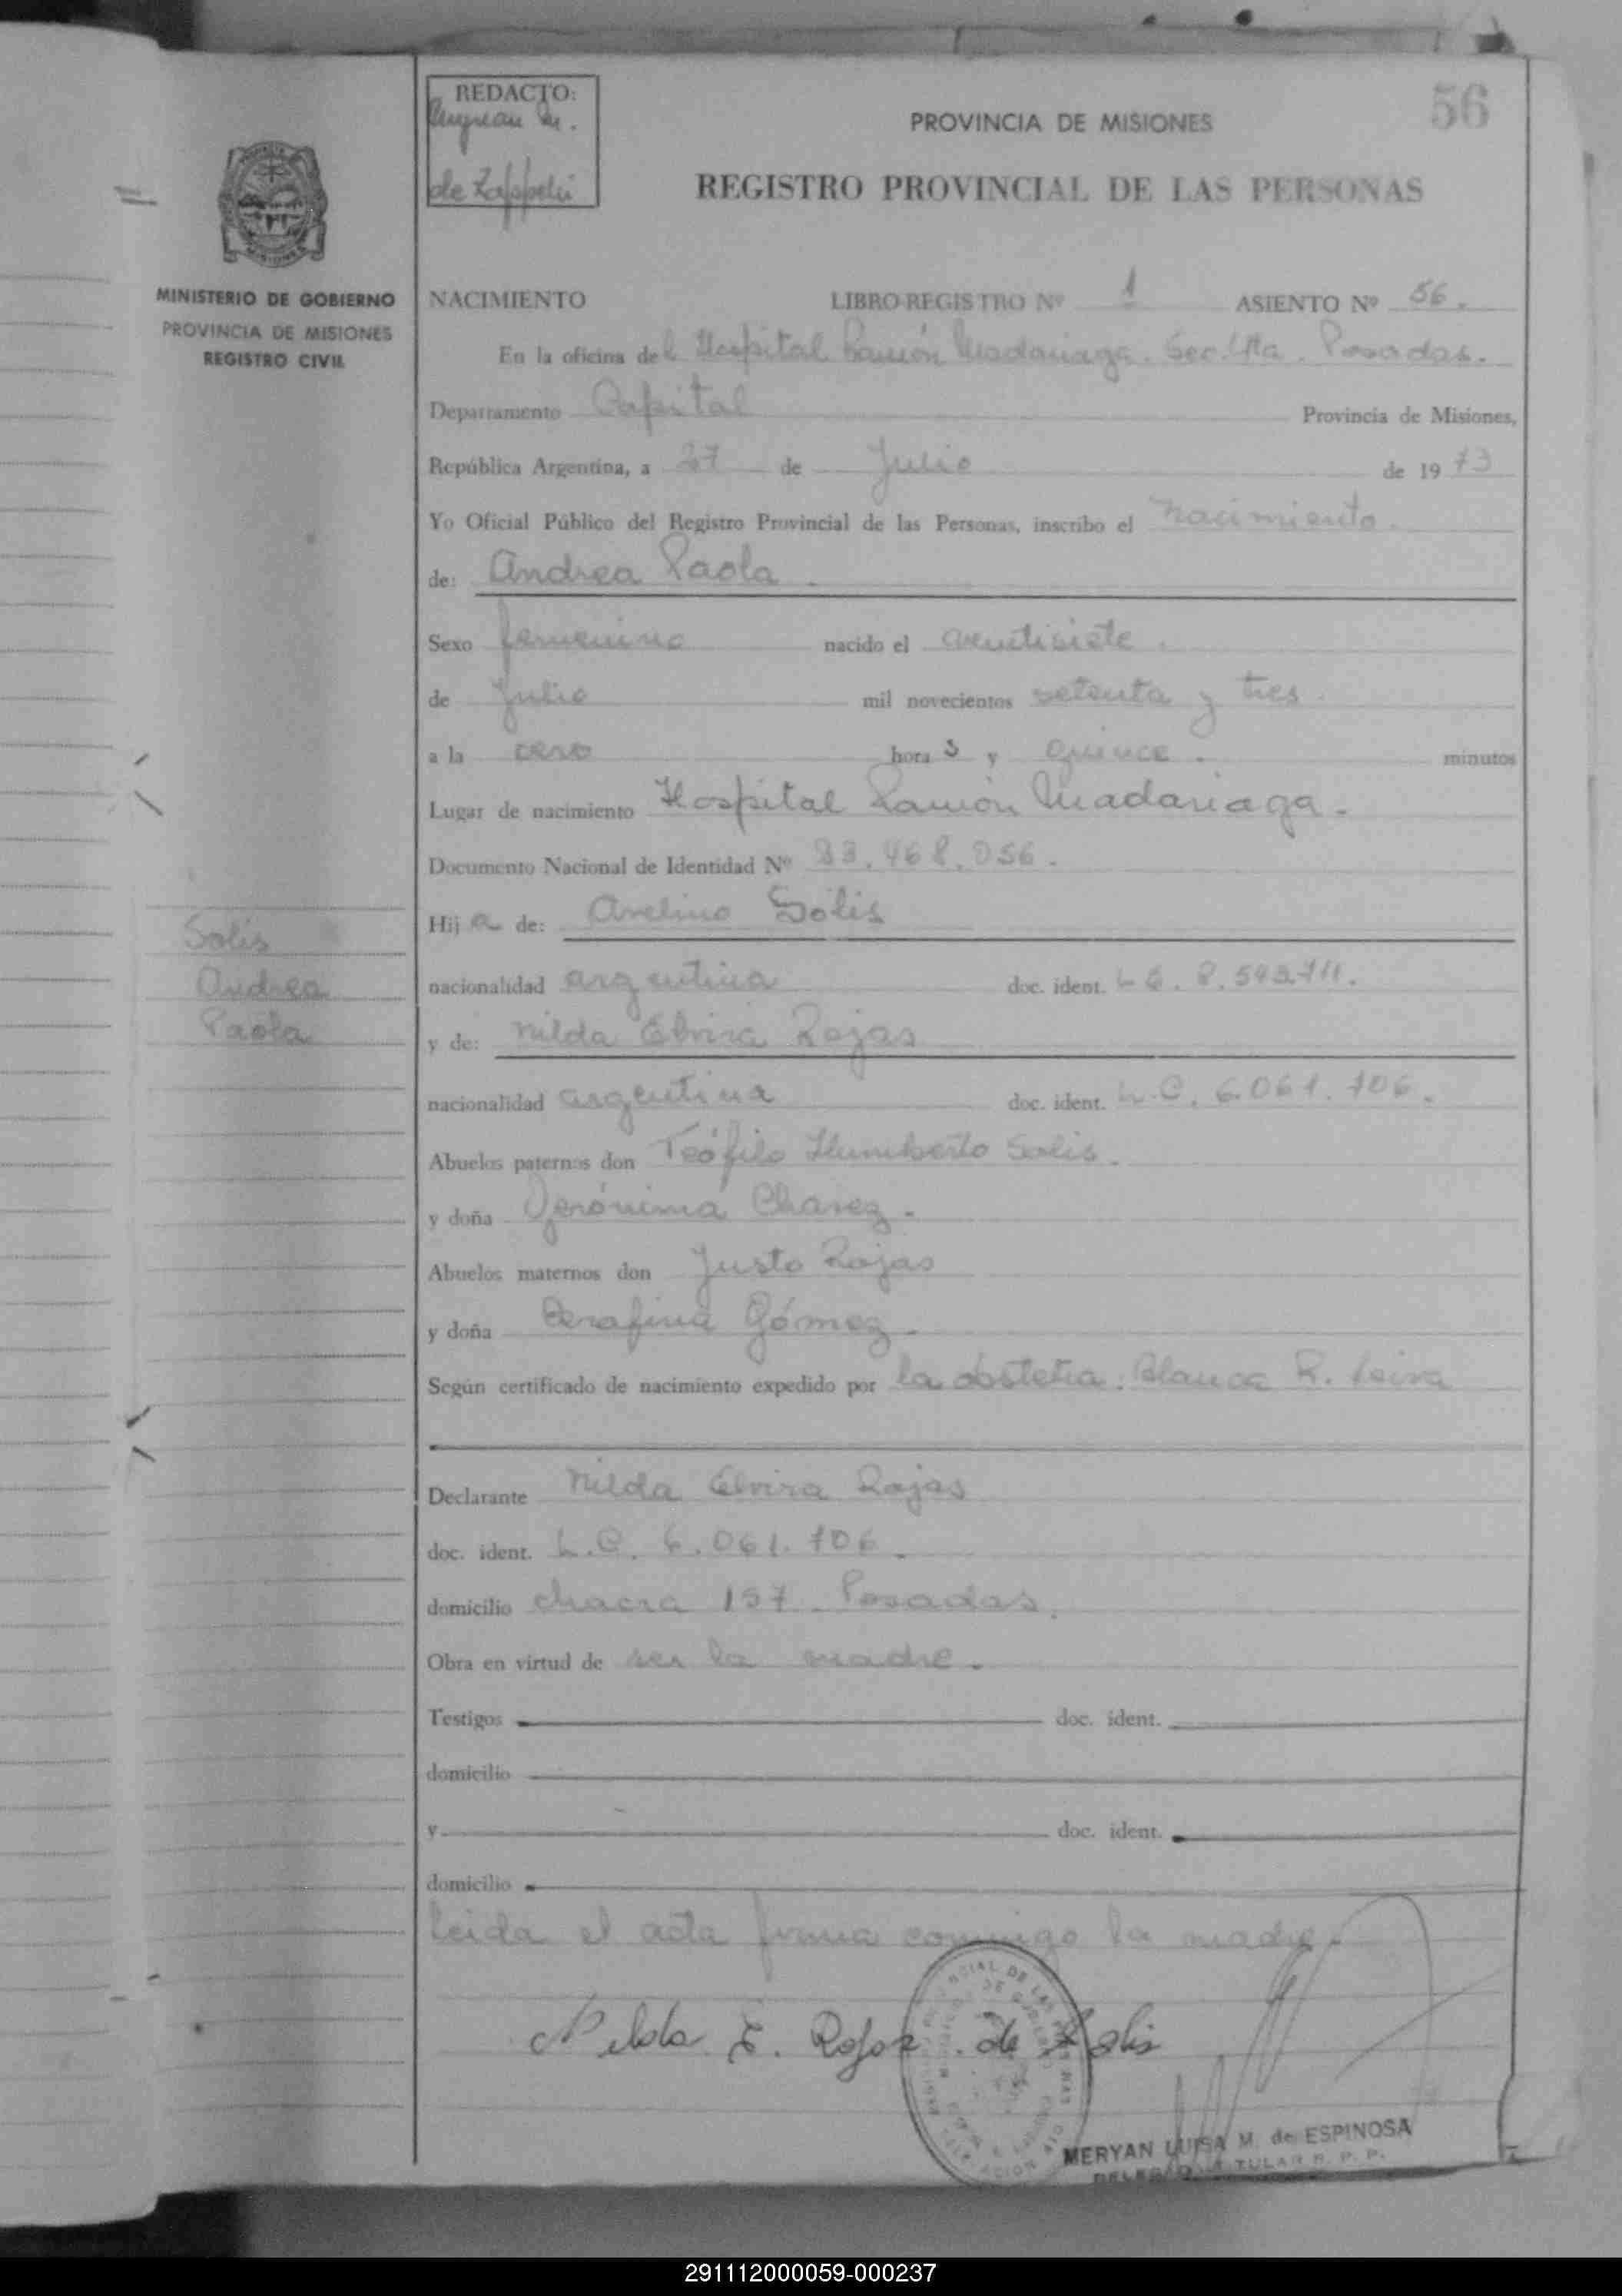 REDACTO:
de Zappelli
56
PROVINCIA DE MISIONES
REGISTRO PROVINCIAL DE LAS PERSONAS
MISIONES
MINISTERIO DE GOBIERNO
PROVINCIA DE MISIONES
REGISTRO CIVIL
NACIMIENTO LIBRO-REGISTRO Nº 1 ASIENTO Nº 56.
En la oficina del Hospital Ramón Madariaga. Sec. 4ta. Posadas.
Departamento Capital Provincia de Misiones,
República Argentina, a 27 de Julio de 1973
Yo Oficial Público del Registro Provincial de las Personas, inscribo el nacimiento.
de: Andrea Paola.
Sexo femenino nacido el veintisiete.
de Julio mil novecientos setenta y tres.
a la cero horas y quince. minutos
Lugar de nacimiento Hospital Ramón Madariaga.
Documento Nacional de Identidad Nº 23.468.056.
Hija de: Avelino Solis
Solis
Andrea
Paola
nacionalidad argentina doc. ident. L E. 8.543.711.
y de: Nilda Elvira Rojas
nacionalidad argentina doc. ident. L.C. 6.061.706.
Abuelos paternos don Teófilo Humberto Solis.
y doña Jerónima Chavez.
Abuelos maternos don Justo Rojas
y doña Serafina Gómez.
Según certificado de nacimiento expedido por la obstetra: Blanca R. Leiva
Declarante Nilda Elvira Rojas
doc. ident. L.C. 6.061.706.
domicilio chacra 157. Posadas.
Obra en virtud de ser la madre.
Testigos doc. ident.
domicilio
y doc. ident.
domicilio
leida el acta firma conmigo la madre.
Nilda E. Rojas de Solis
MERYAN LUISA M. de ESPINOSA
DELEGADA TITULAR R. P. P.
291112000059-000237